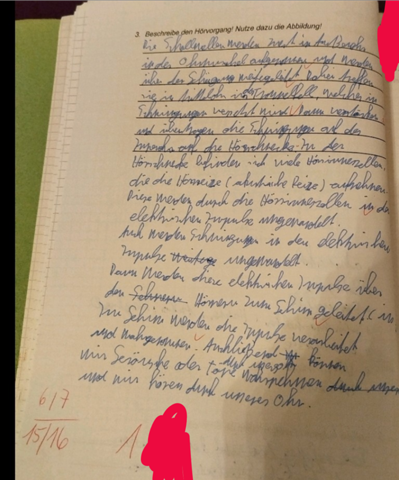 3. Beschreibe den Hörvorgang! Nutze dazu die Abbildung!
Die Schallwellen werden zuerst in
in der Ohrmuschel aufgenommen und werden
über den weitergeleitet. Daher treffen
sie im Trommelfell, welches in
Schwingungen versetzt wird. Dann verstärken
und übertragen die Schwingungen auf das
auf die Hörschnecke. In der
Hörschnecke befinden sich viele Hörsinneszellen,
die die Hörreize (akustische Reize) aufnehmen.
Diese werden durch die Hörsinneszellen in
elektrischen Impulse umgewandelt.
Auch werden Schwingungen in den elektrischen
Impulse umgewandelt.
Dann werden diese elektrischen Impulse über
den Hörnerv zum Gehirn geleitet. Im
Gehirn werden die Impulse verarbeitet
und wahrgenommen. Anschließend können
wir Geräusche oder Töne wahrnehmen durch unser
und wir hören durch unsere Ohr.
6/7
15/16
1